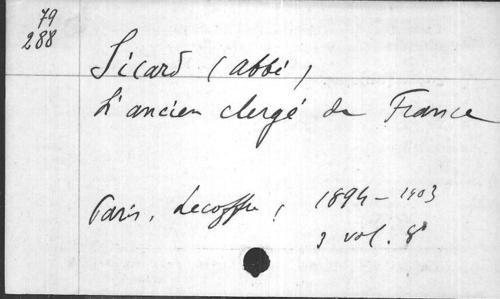 79
288
Sicard (abbé)
L'ancien clergé de France
Paris, Lecoffre, 1894-1903
3 vol. 8°